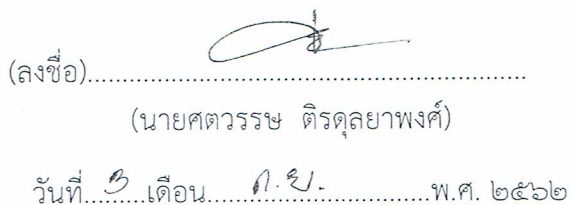 (ลงชื่อ)......................................................
(นายศตวรรษ ติรดุลยาพงศ์)
วันที่ 3 เดือน ก.ย. พ.ศ. ๒๕๖๒